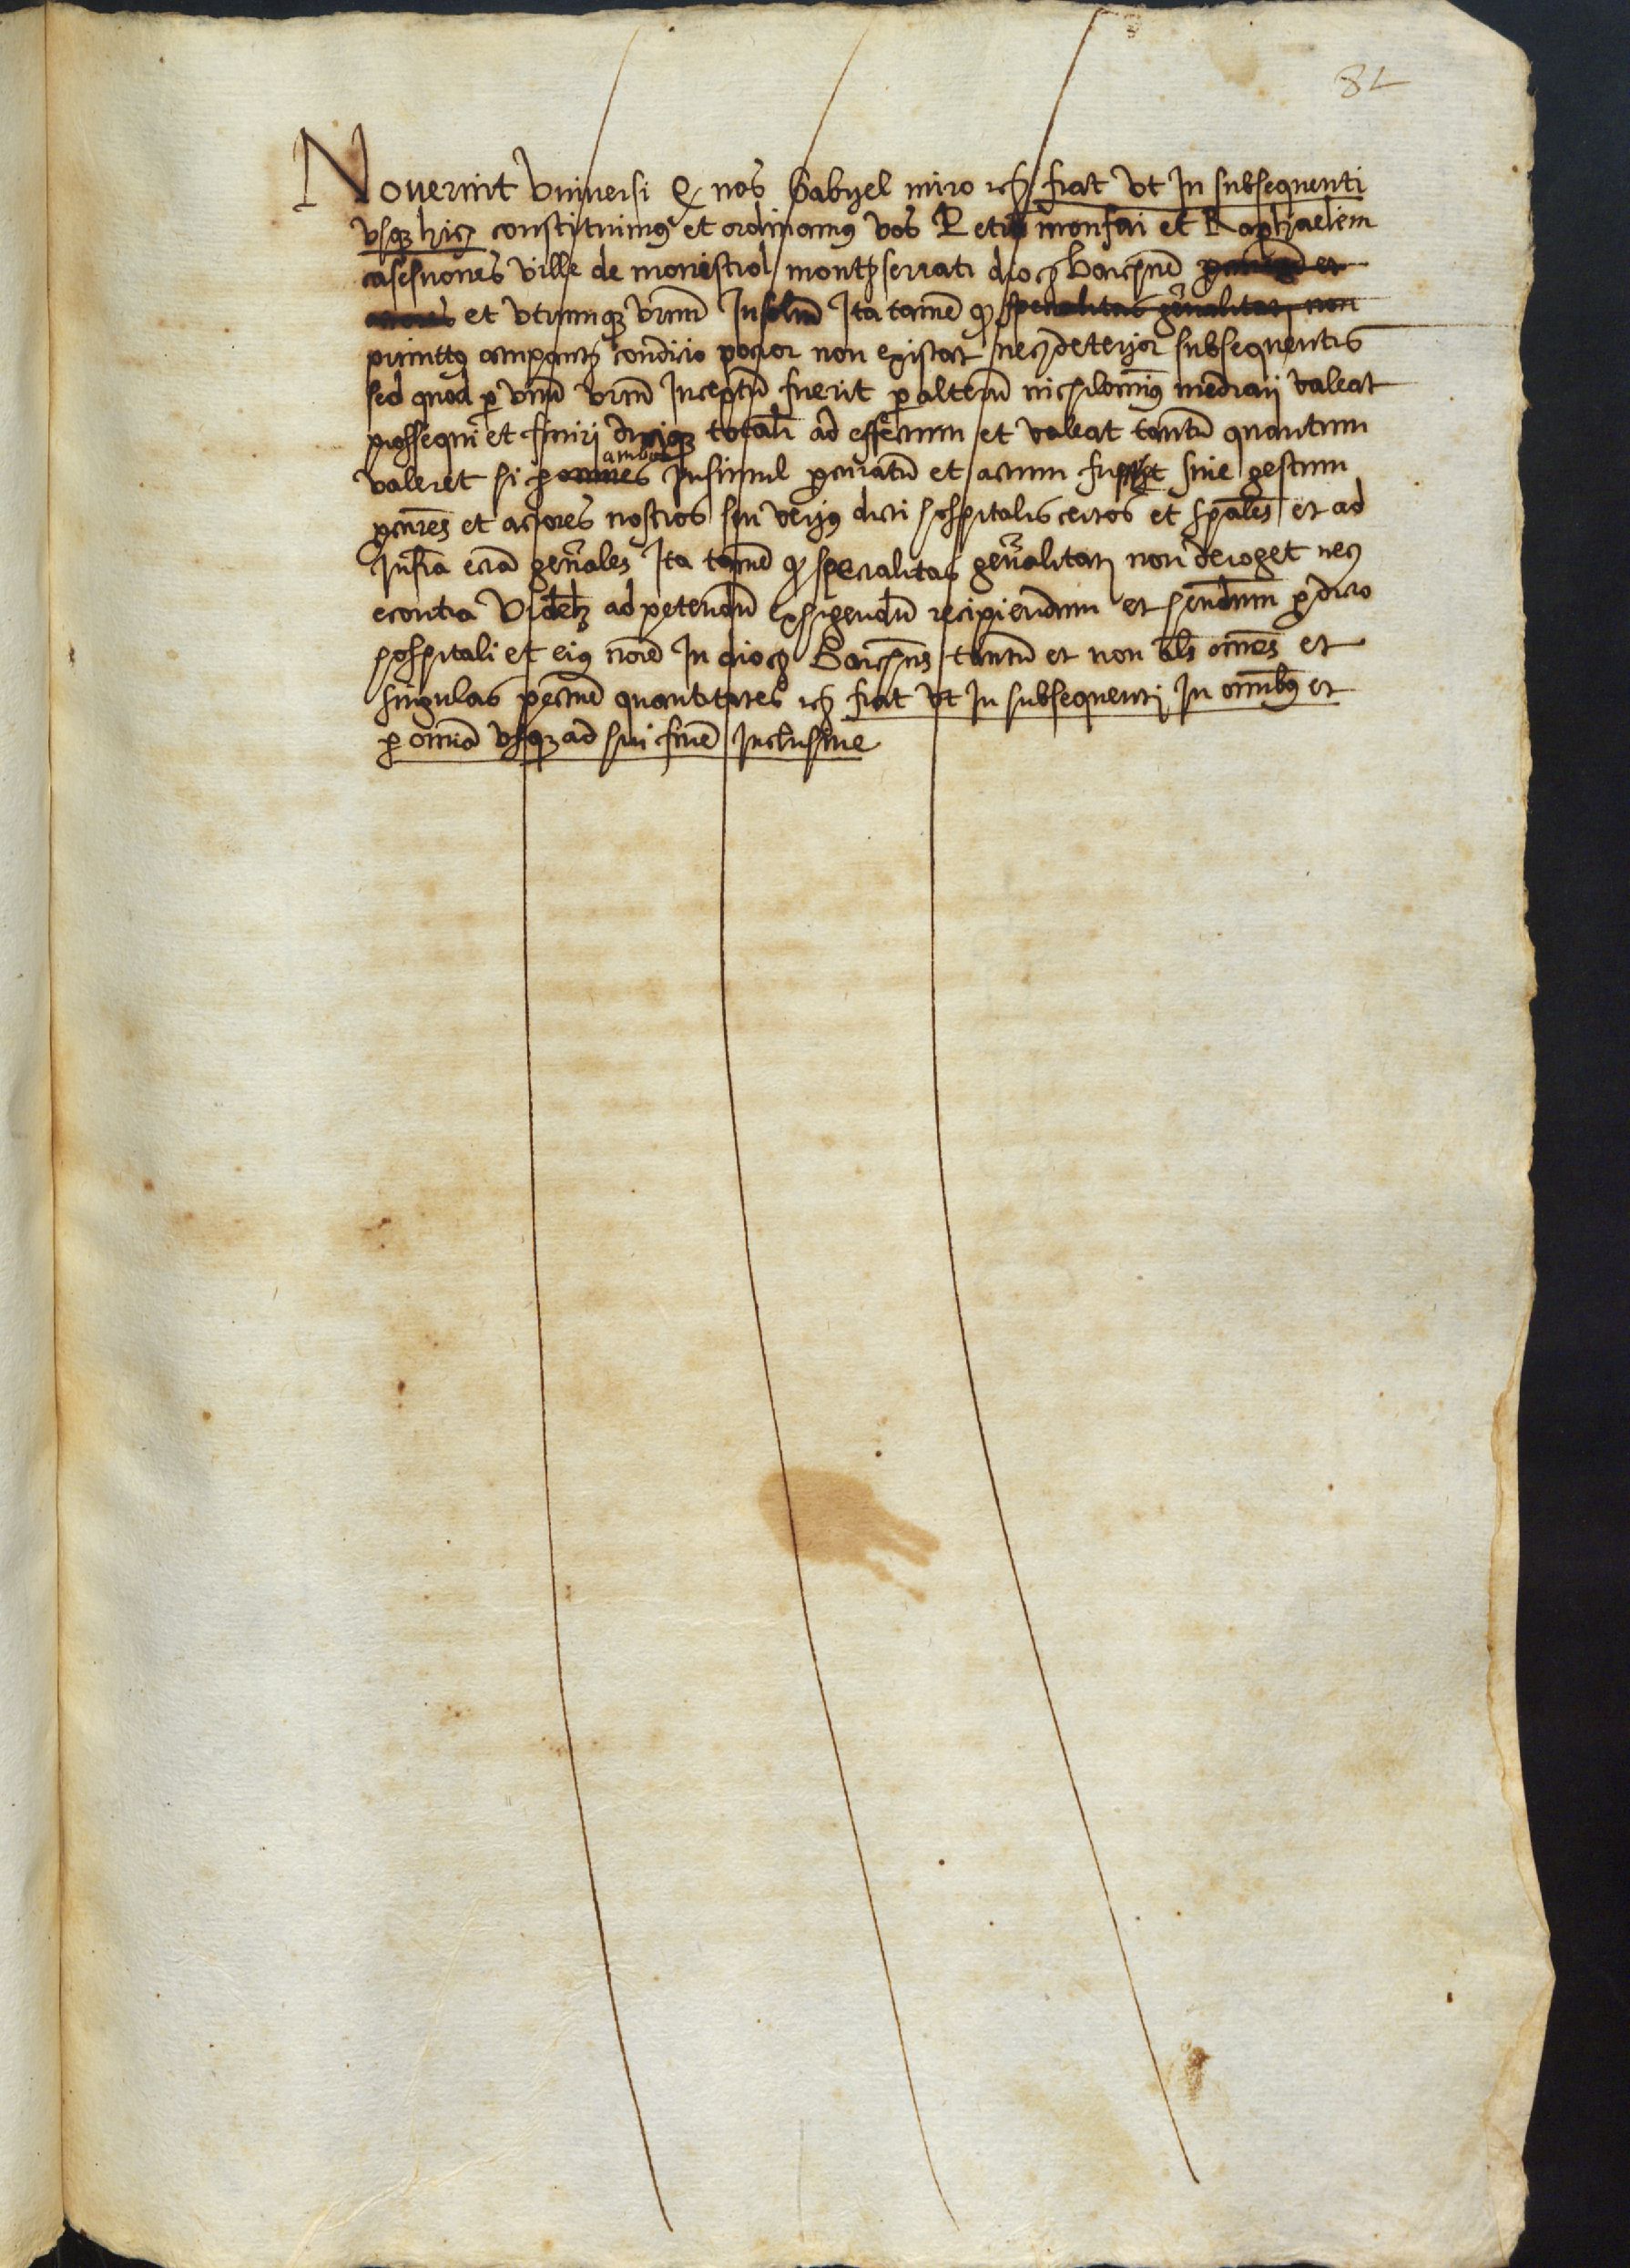 82
Noverint Universi q nos Gabriel miro etc fiat ut In subsequenti
usq huc constituimus et ordinamus vos Petrum monfar et Raphaelem
casesnoves ville de monistrol montisserrati dioc Barchne procuratores et
actores et utrumq vrum Insolidum Ita tamen q specialitas generalitati non
primitus occupantis condicio pocior non existat nec deterior subsequentis
sed quod per unum vrum Inceptum fuerit per alterum nichilominus mediari valeat
prossequi et finiri duciq totali ad effectum et valeat tantum quantum
ambos
valeret si per omnes Insimul procuratum et actum fuisset sive gestum
procures et actores nostros seu verius dicti hospitalis certos et speales et ad
Infra eciam generales Ita tamen q specialitas generalitati non deroget nec
econtra Videlz ad petendum exhigendum recipiendum et hendum pro dicto
hospitali et eius nomine In dioc Barchne tantum et non als omnes et
singulas peccunie quantitates etc fiat ut In subsequenti In omnibus et
per omnia usq ad sui finem Inclusive